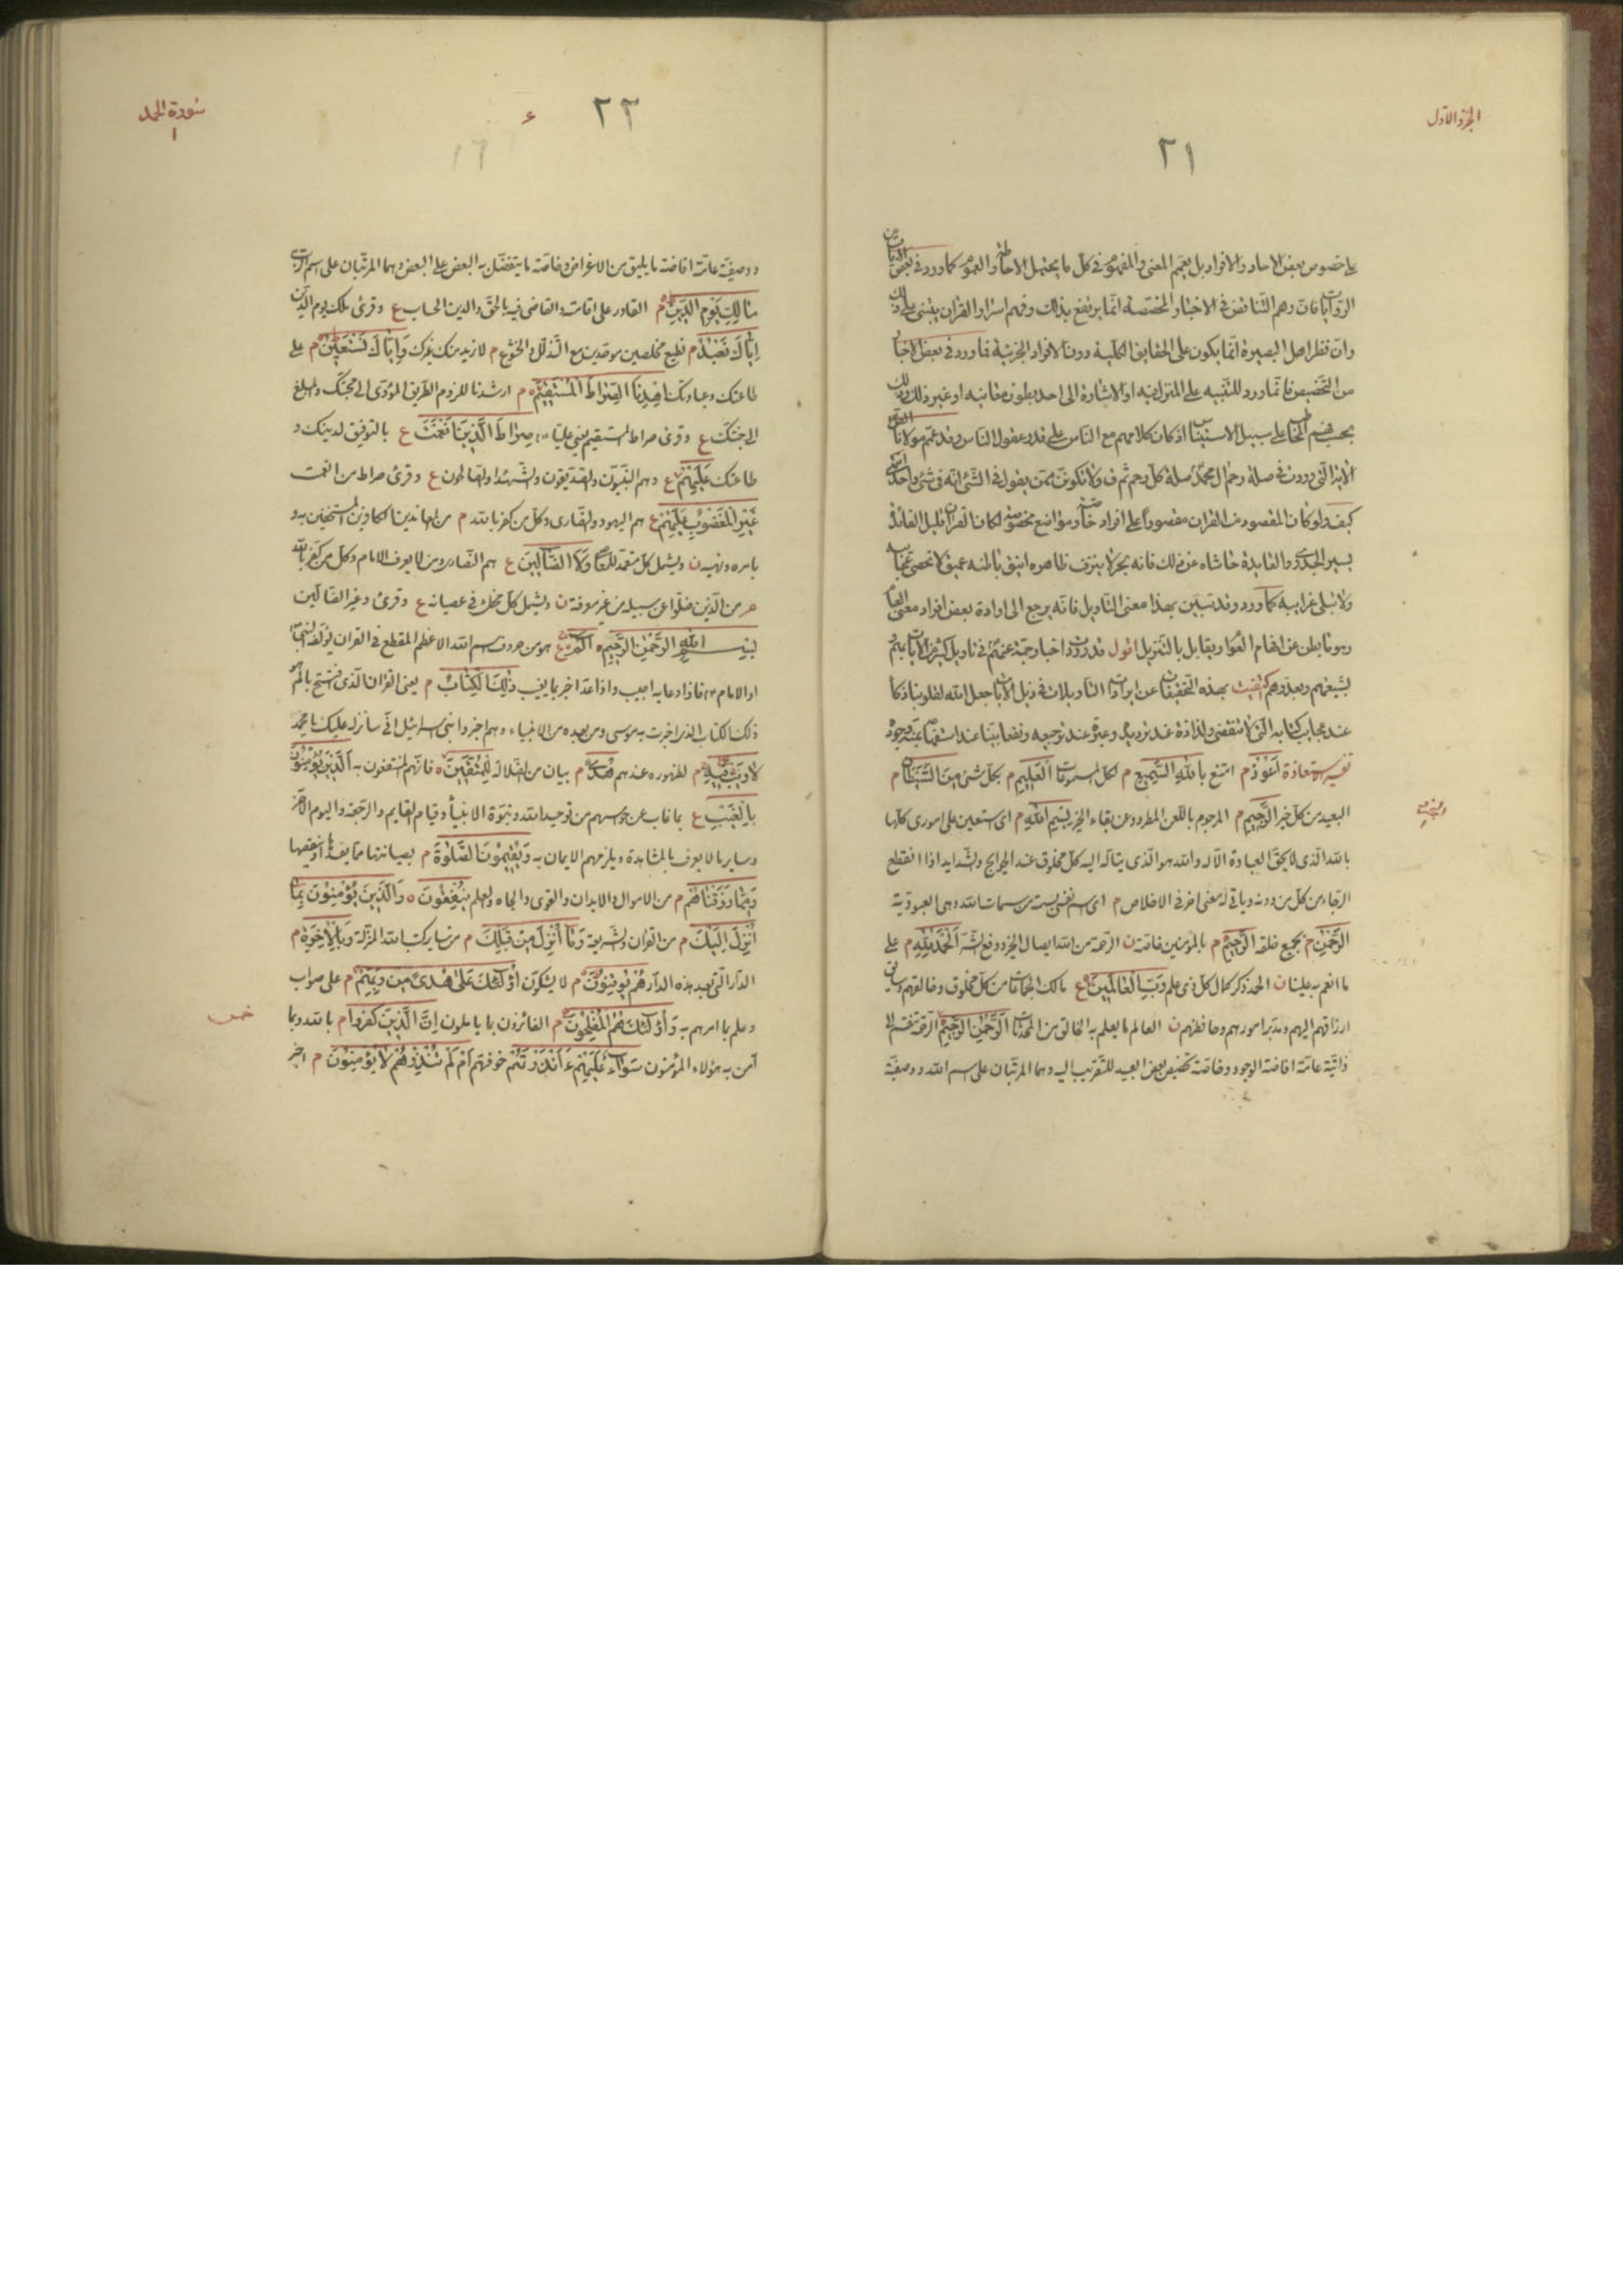 الجزو الاول
٢١
على خصوص بعض الاحاد والافراد بل يعمم المعنى والمفهوم فى كل ما يحتمل الاحاطة والعموم كما ورد فى بعض الايات من
الروايات فان وهم التناقض فى الاخبار المخصصة انما يرتفع بذلك وفهم اسرار القران يبتنى على ذلك
وان نظر اهل البصيرة انما يكون على الحقايق الكلية دون الافراد الجزئية فما ورد فى بعض الاخبار
من التخصيص فانما ورد للتنبيه على المنزل فيه او الاشارة الى احد بطون معانيه او غير ذلك وذلك
بحسب فهم المخاطب على سبيل الاستيناس اذ كان كلامهم مع الناس على قدر عقول الناس وقد عمم مولانا الصادق
الاية التى وردت فى صلة رحم ال محمد صلة كل رحم ثم ق ولا تكونن ممن يقول فى الشئ انه فى شئ واحد انتهى
كيف ولو كان المقصود من القران مقصورا على افراد خاصة ومواضع مخصوصة لكان القران قليل الفائدة
يسير الجدوى والعايدة حاشاه عن ذلك فانه بحر لا ينزف ظاهره انيق باطنه عميق لا تحصى عجائبه
ولا تبلى غرايبه كما ورد وقد تبين بهذا معنى التاويل فانه يرجع الى ارادة بعض افراد معنى العام
وهو ما بطن عن افهام العوام ويقابل بالتنزيل اقول قد وردت اخبار جمة عنهم فى تاويل كثير من الايات بهم و
بشيعتهم وبعدوهم كتفيت بهذه التحقيقات عن ايرادات التاويلات فى ذيل الايات جعل الله لقلوبنا ذكا
عند عجايب كتابه التى لا تنقضى ولذاذة عند ترديده وعبرة عند ترجيعه ونفعا بينا عند استفهامه بمنه وجوده
تفسير الاستعاذة اعوذ م امتنع بالله السميع م لكل المسموعات العليم م بكل شئ من الشيطان م
البعيد من كل خير الرجيم م المرجوم باللعن المطرود عن بقاء الخير بسم الله م اى استعين على امورى كلها
بالله الذى لا يحق العبادة الا له والله هو الذى يتاله اليه كل مخلوق عند الحوائج والشدايد اذا انقطع
الرجاء من كل من دونه وياتى له معنى اخر فى الاخلاص م اى اسم نفسى بسمة من سمات الله وهى العبودية
الرحمن م بجميع خلقه الرحيم م بالمؤمنين خاصة ن الرحمة من الله ايصال الخير ودفع الشر الحمد لله م على
ما انعم به علينا ن الحمد ذكر كمال كل ذى علم رب العالمين ع مالك الجماعات من كل مخلوق وخالقهم وسائق
ارزاقهم اليهم ومدبر امورهم وحافظهم ن العالم ما يعلم به الخالق من المحدثات الرحمن الرحيم الرحمة تقسم الى
ذاتية عامة افاضة الوجود وخاصة تخصيص بعض العبيد للتقريب اليه وهما المرتبان على اسم الله ووصفية
سورة الحمد
١
٢٢
١٦
ووصفية عامة افاضة ما يليق من الاغراض وخاصة ما يتفضل به البعض على البعض وهما المرتبان على اسم الرب
مالك يوم الدين م القادر على اقامته والقاضى فيه بالحق والدين الحساب ع وقرئ ملك يوم الدين
اياك نعبد م نطيع مخلصين موحدين مع التذلل والخشوع م لا نريد منك غيرك واياك نستعين م على
طاعتك وعبادتك اهدنا الصراط المستقيم م ارشدنا للزوم الطريق المؤدى الى محبتك والمبلغ
الى جنتك ع وقرئ صراط المستقيم يعنى عليا صراط الذين انعمت ع بالتوفيق لدينك و
طاعتك عليهم ع وهم النبيون والصديقون والشهداء والصالحون ع وقرئ صراط من انعمت
غير المغضوب عليهم ع هم اليهود والنصارى وكل من كفر بالله م من المعاندين الكافرين المستخفين به و
بامره ونهيه ن ويشمل كل متعمد للمعاصى ولا الضالين ع هم النصارى ومن لا يعرف الامام وكل من كفر بالله
هم من الذين ضلوا عن سبيله من غير معرفة ن ويشمل كل مخطئ فى عصيانه ع وقرئ وغير الضالين
بسم الله الرحمن الرحيم الم ع هو من حروف اسم الله الاعظم المقطع فى القران يؤلفه النبى
او الامام فاذا دعا به اجيب واذا عد اخبر بما يغيب ذلك الكتاب م يعنى القران الذى افتتح بالم هو
ذلك الكتاب الذى اخبرت به موسى ومن بعده من الانبياء وهم اخبروا بنى اسرائيل انى سانزله عليك يا محمد
لا ريب فيه م لظهوره عندهم هدى م بيان من الضلالة للمتقين فانهم المنتفعون به الذين يؤمنون
بالغيب ع بما غاب عن حواسهم من توحيد الله ونبوة الانبياء وقيام القايم والرجعة واليوم الاخر
وساير ما لا يعرف بالمشاهدة ويلزمهم الايمان به ويقيمون الصلوة م بصيانتها مما يفسدها او ينقصها
ومما رزقناهم م من الاموال والابدان والقوى والجاه والعلم ينفقون والذين يؤمنون بما
انزل اليك م من القران والشريعة وما انزل من قبلك م من ساير كتب الله المنزلة وبالاخرة م
الدار التى بعد هذه الدار هم يوقنون م لا يشكون اولئك على هدى من ربهم م على صواب
وعلم بما امرهم به واولئك هم المفلحون م الفائزون بما ياملون ان الذين كفروا م بالله وبما
آمن به هؤلاء المؤمنون سواء عليهم ءانذرتهم خوفتهم ام لم تنذرهم لا يؤمنون م اخبر